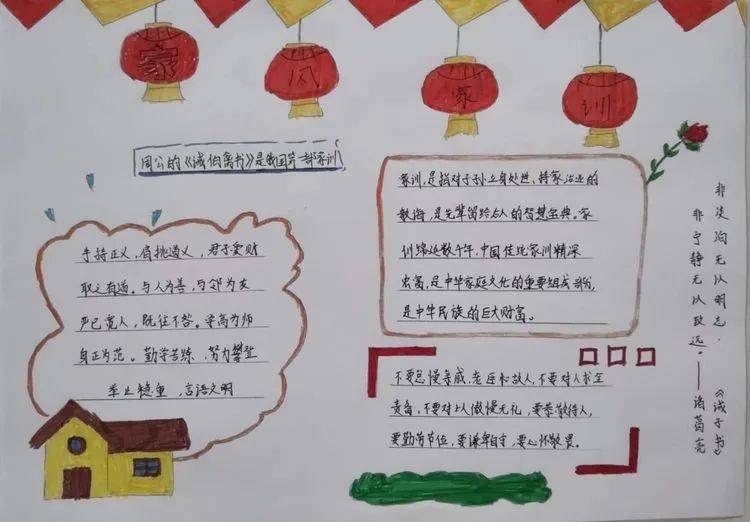 家
风
家
训
周公的《诫伯禽书》是我国第一部家训
手持正义，肩挑道义，君子爱财
取之有道。与人为善，与邻为友
严己宽人，既往不咎。学高为师
身正为范。勤学苦练，努力攀登
举止稳重，言语文明
家训，是指对子孙立身处世、持家治业的
教诲，是先辈留给后人的智慧宝典。家
训绵延数千年，中国传统家训精深
宏富，是中华家庭文化的重要组成部分
是中华民族的巨大财富。
不要怠慢亲戚，老臣和故人，不要对人求全
责备，不要对士人傲慢无礼，要恭敬待人，
要勤劳节俭，要谦卑自守，要心怀敬畏。
非淡泊无以明志，
非宁静无以致远。——诸葛亮
《诫子书》